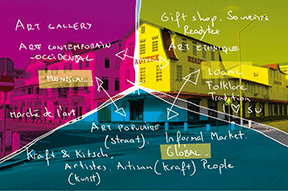 ART GALLERY
Gift shop. Souvenirs
Readytex
ART CONTEMPORAIN
OCCIDENTAL
ART ETHNIQUE
MONDIAL
LOCAL
Folklore
Tradition
Marché de l'art
SU
ART POPULAIRE
(Straat).
Informal Market.
GLOBAL.
Kraft & Kitsch.
Artistes. Artisan (Kraft) People
(Kunst)